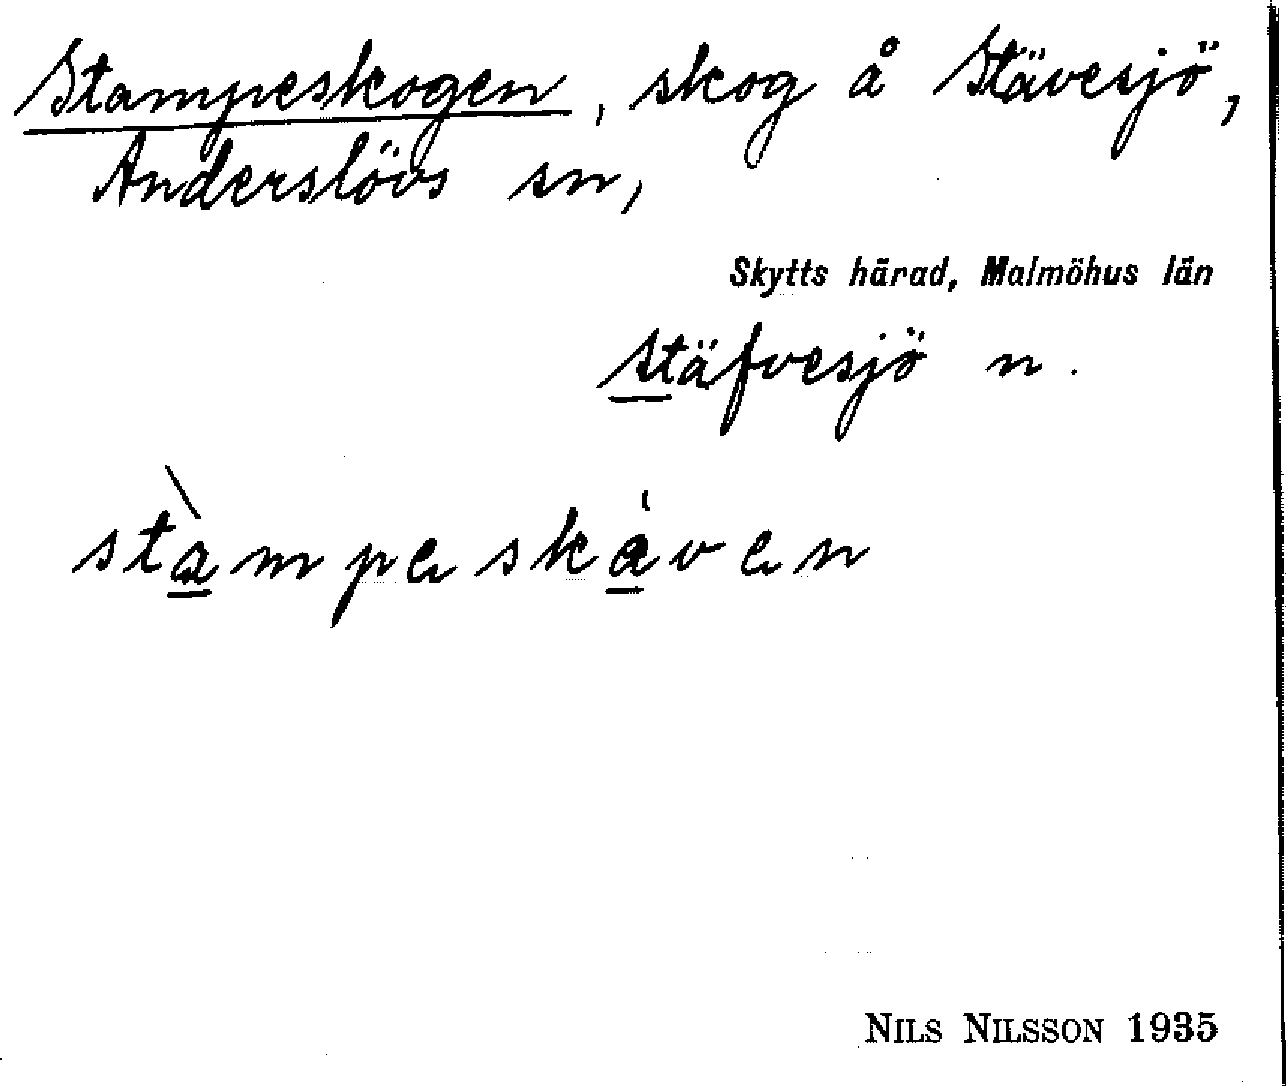 Stampeskogen, skog å Stävesjö,
Anderslövs sn,
Skytts härad, Malmöhus län
Stäfvesjö n.
stàmpeskáven
NILS NILSSON 1935